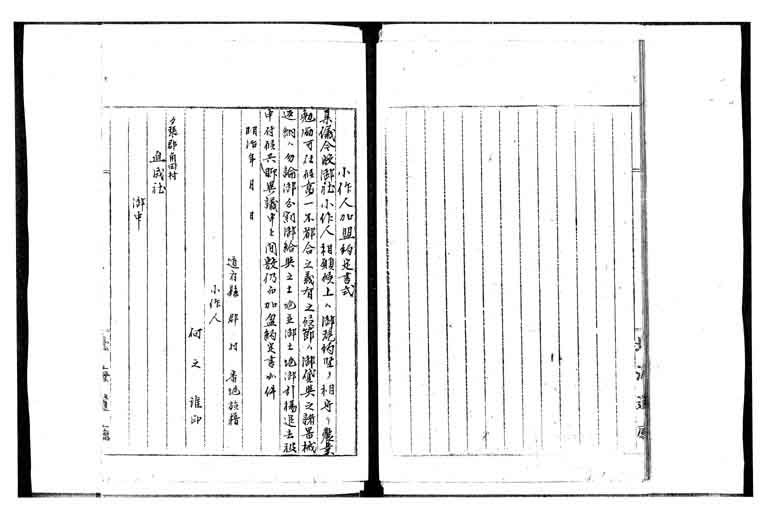 小作人加盟約定書式
某儀今般御社小作人相願候上ハ御規約堅ク相守リ農業
勉励可仕候萬一不都合之義有之候節ハ御貸與之諸器械
返納ハ勿論御分割御給與之土地並御土地御引揚退去被
申付候共聊異議申上間敷仍而加盟約定書如件
明治 年 月 日
道府縣 郡 村 番地族籍
小作人
何之誰印
夕張郡角田村
御中
北海道廳
北海道廳